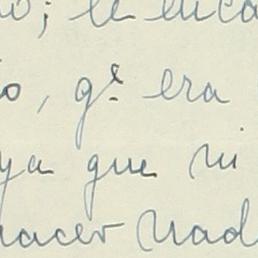 o; le enca
o, qe era
ya que ni
hacer nad